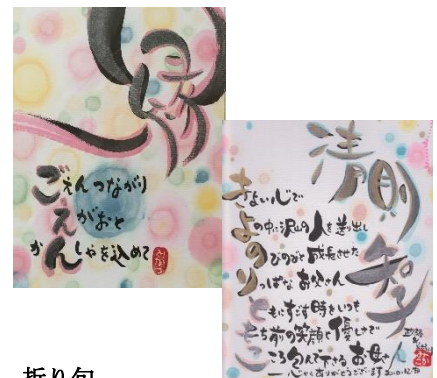 ごえんつながり
えがおと
かんしゃを込めて
清則
知子
きよい心で
よの中に沢山の人を送り出し
のびのびと成長させた
りっぱなお父さん
ともにすごす時をいつも
もち前の笑顔と優しさで
こころ包んで下さるお母さん
心からありがとうございます
折り句